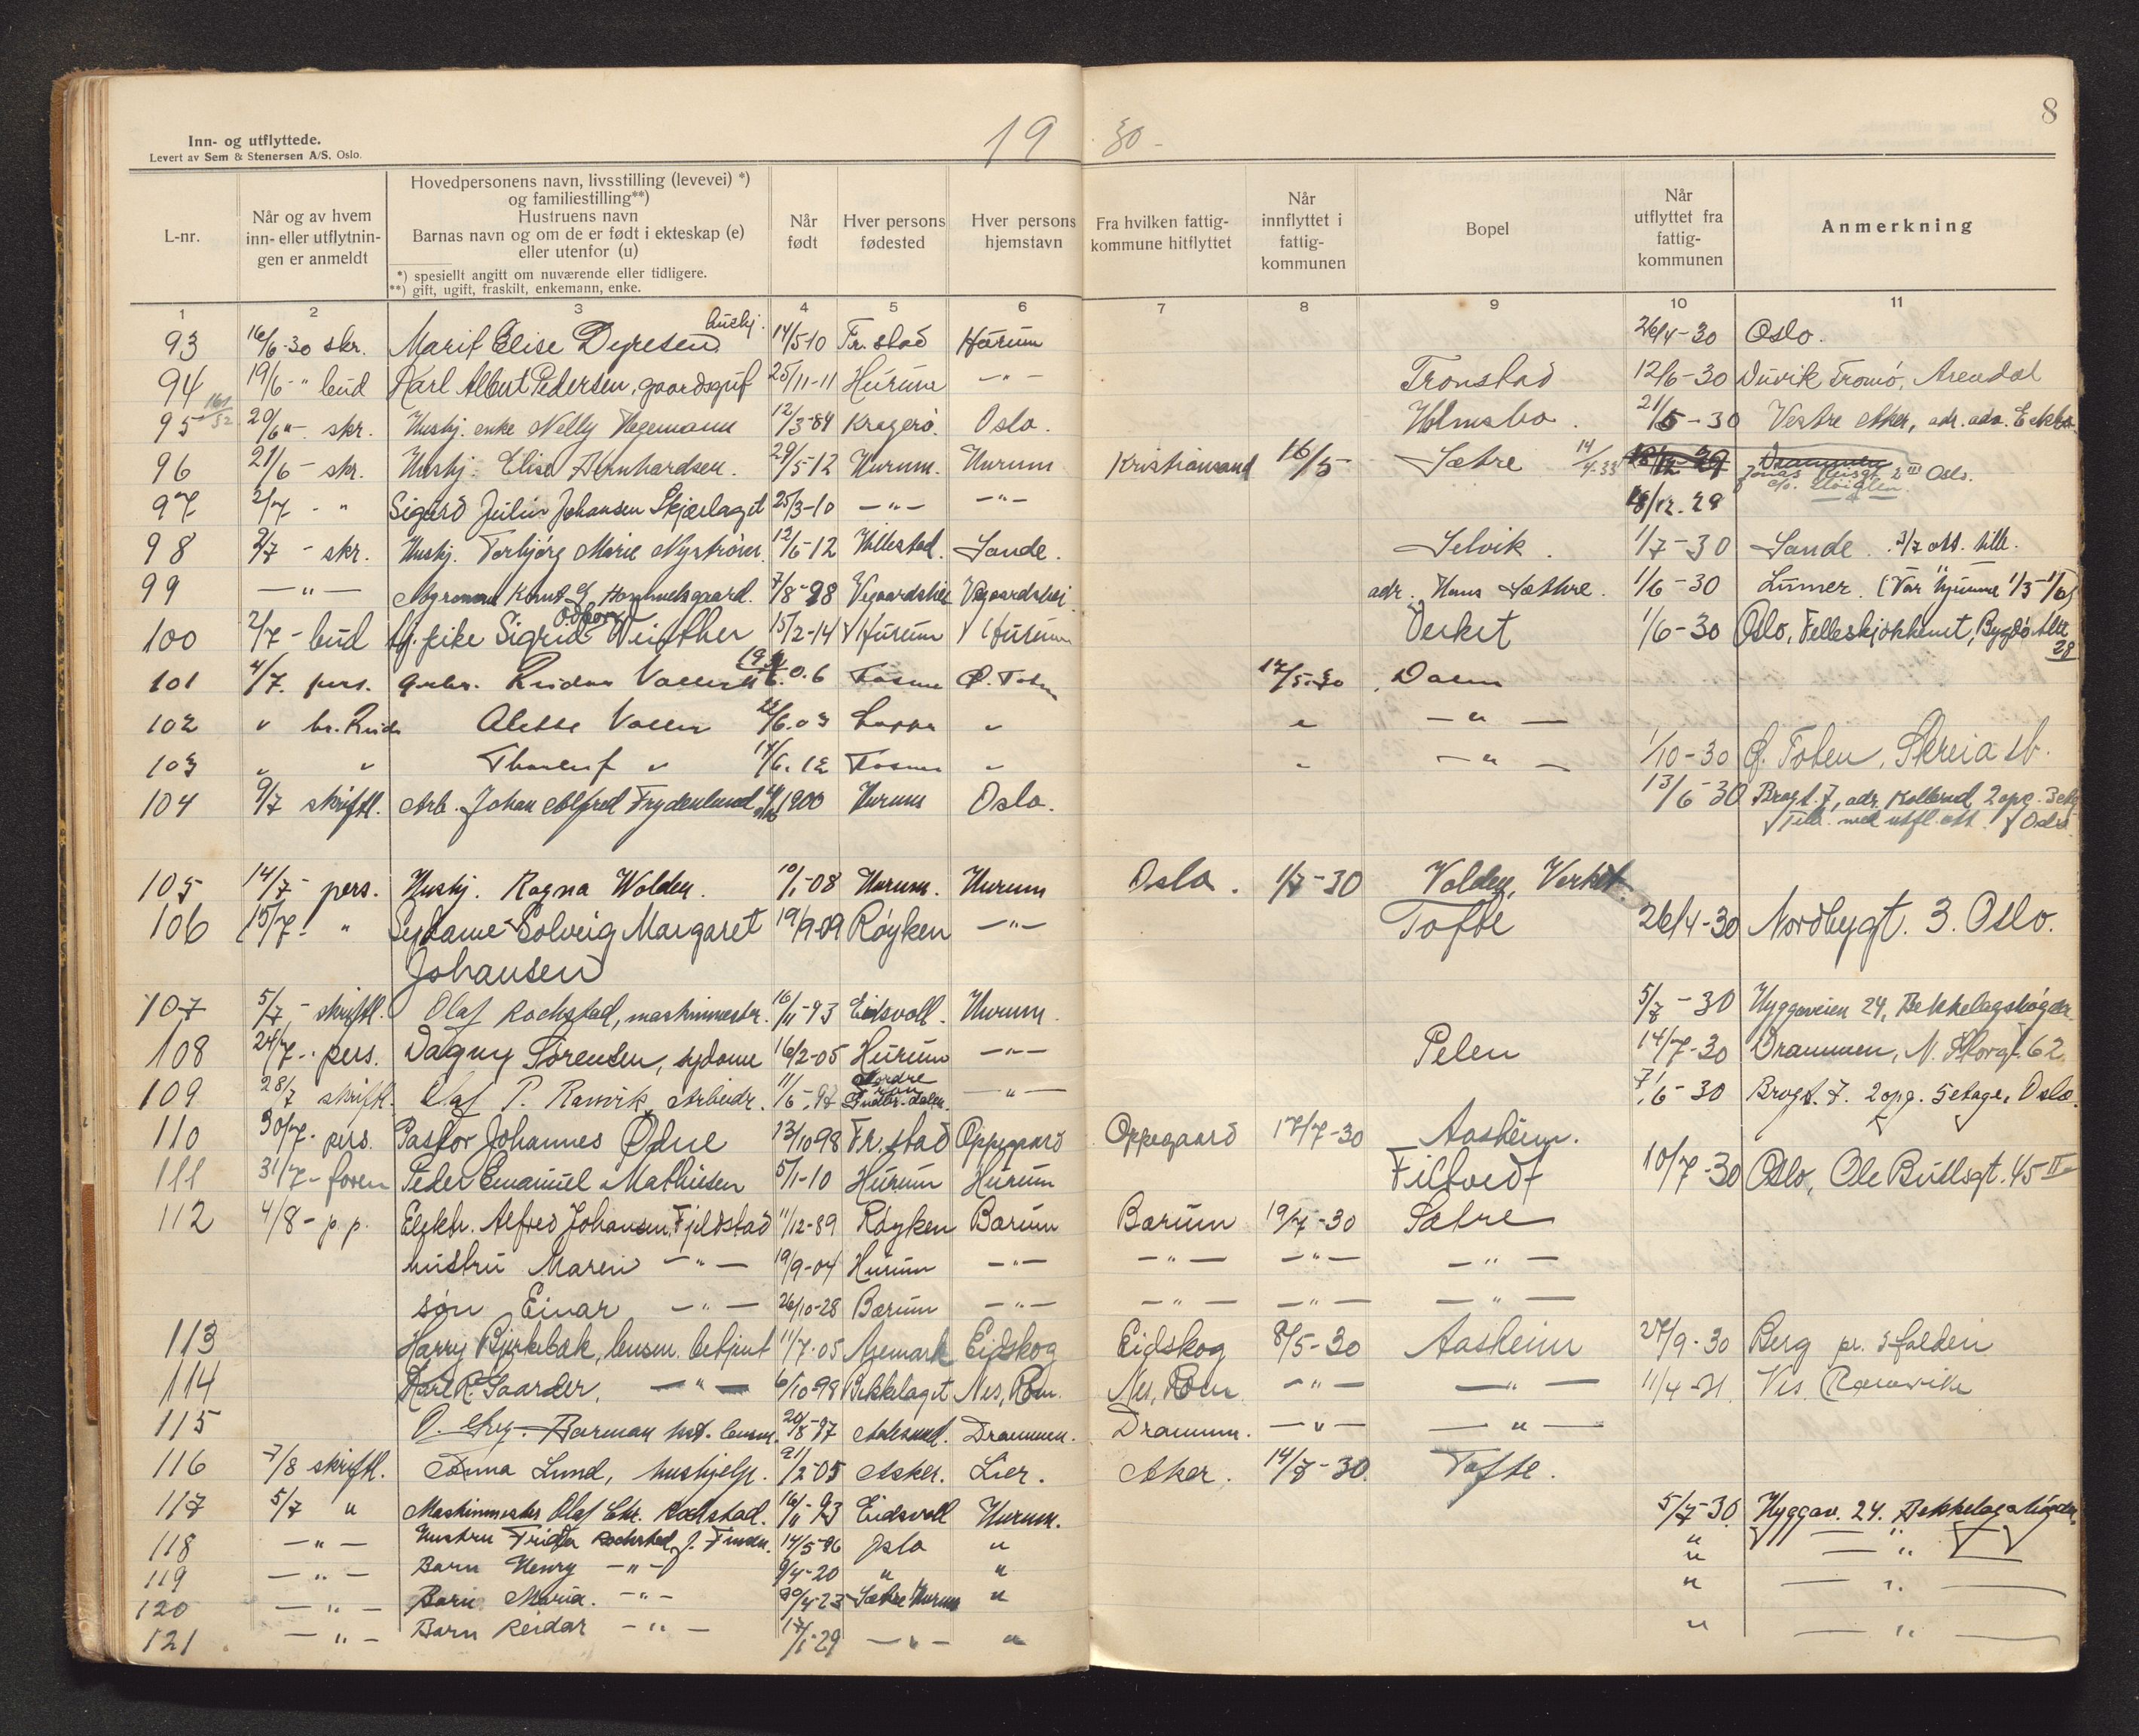 8
19 30 -
Inn- og utflyttede.
Levert av Sem & Stenersen A/S. Oslo.
L-nr.
Når og av hvem inn- eller utflytnin- gen er anmeldt
Hovedpersonens navn, livsstilling (levevei) *)
og familiestilling**)
Hustruens navn
Barnas navn og om de er født i ekteskap (e)
eller utenfor (u)
*) spesiellt angitt om nuværende eller tidligere.
**) gift, ugift, fraskilt, enkemann, enke.
Når født
Hver persons fødested
Hver persons hjemstavn
Fra hvilken fattig- kommune hitflyttet
Når innflyttet i fattig- kommunen
Bopel
Når utflyttet fra fattig- kommunen
Anmerkning
1 2 3 4 5 6 7 8 9 10 11
93 16/6-30 skr. Marit Elise Dyresen hushj. 14/5-10 Fr.stad Hurum 26/4-30 Oslo.
94 19/6-" bud Karl Albert Pedersen, gaardsgut 25/11-11 Hurum -"- Tronstad 12/6-30 Duvik Tromö, Arendal
95 20/6 " skr. Hushj. enke Nelly Hegemann 12/3-84 Kragerö. Oslo. Holmsbo. 21/5-30 Vestre Aker, adr. adv.
96 21/6 - skr. Hushj. Elise Bernhardsen. 29/5-12 Hurum. Hurum Kristiansand 16/5 Sætre 14/4-33 Drammen Oslo.
97 2/7 - " Sigurd Julius Johansen Skjærlaget 25/3-10 -"- -"- 18/12.29
98 3/7 - skr. Hushj. Torbjörg Marie Nyström 12/6-12 Hillestad. Sande. Selvik. 1/7-30 Sande. 3/7 att. till.
99 -"- Agronom Knut G. 7/8-98 Vegaardshei Vegaardshei. adr. Hans Sæthre. 1/6-30 Lunner.
100 2/7 - bud tj. pike Sigrid Odborg Winther 15/2-14 Hurum Hurum Verket 1/6-30 Oslo, Felleskjökkenet, Bygdö Alle 28
101 4/7. pers. Reidar Vollen 0.6 17/5.30 Dalen
102 " Vollen 22/6.03 " " -"-
103 " " " 14/6.12 " " -"- 1/10-30 Ø. Toten, Skreia st.
104 9/7 skriftl. Arb. Johan Alfred Frydenlund 1900 Hurum Oslo. 13/6-30 Brogt. 7, adr. Kollerud, 2 opg. 3 etg.
105 14/7 - pers. Hushj. Ragna Wolden. 10/1-08 Hurum. Hurum Oslo. 1/7-30 Volden, Verket
106 15/7- " Sydame Solveig Margaret 19/9-09 Røyken -"- Tofte 26/4-30 Nordbygt. 3. Oslo.
Johansen
107 5/7 - skriftl. Olaf Rochstad, maskinmester. 16/11-93 Eidsvoll. Hurum. 5/7-30 Hyggeveien 24, Bekkelagshögda
108 24/7-. pers. Dagny Sörensen, sydame 16/2-05 Hurum -"- Pelen 14/7-30 Drammen, N. Storgt. 62.
109 28/7 skriftl. Olaf P. Ramvik, Arbeidr. 11/6-97 Nordre -"- 7/6-30 Brogt. 7. 2 opg. 5 etage, Oslo.
110 30/7- pers. Pastor Johannes Ødne 13/10 98 Fr.stad Oppegaard Oppegaard 17/7-30 Aasheim.
111 31/7- foren Peder Emanuel Mathisen 5/1-10 Hurum Hurum Filtvedt 10/7-30 Oslo, Ole Bullsgt. 45 II
112 4/8 - p.p. Elektr. Alfred Johansen Fjeldstad 11/12-89 Røyken Bærum Bærum 19/7-30 Sætre
hustru Maren -"- 19/9-04 Hurum -"- -"- -"- -"-
søn Einar -"- 26/10-28 Bærum -"- -"- -"- -"-
113 Harry Bjerkebæk, lensm. betjent 11/7-05 Aremark Eidskog Eidskog 8/5-30 Aasheim 27/9-30 Berg pr. Halden
114 Kåre R. Gaarder, -"- 6/10-98 Bekkelaget Nes, Rom. Nes, Rom. -"- -"- 11/4-31. Vis.
115 O. Aug. Barman lensm. 20/8-97 Aalesund. Drammen. Drammen. -"- -"-
116 7/8 skriftl. Anna Lund, hushjelp. 21/2-05 Asker. Lier. Aker. 14/7-30. Tofte.
117 5/7 " Maskinmester Olaf Chr. Rochstad. 16/11-93 Eidsvoll Hurum. 5/7-30. Hyggav. 24. Bekkelagshögda.
118 -"- Hustru Frida Rochstad, f. 14/5-96 Oslo " " -"-
119 -"- Barn Henry -"- 9/4-20 " " " -"-
120 -"- Barn Maria. -"- 30/4-23 Sætre Hurum " " -"-
121. -"- Barn Reidar -"- 17/1-29 -"- " " -"-